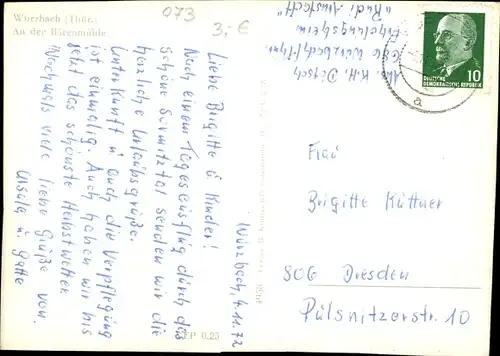 Wurzbach (Thür.)
An der Bärenmühle
073
3,- €
Wurzbach, 4.11.72
Liebe Brigitte u. Kinder!
Nach einem Tagesausflug durch das
schöne Sormitztal senden wir die
herzliche Urlaubsgrüße.
Unterkunft u. auch die Verpflegung
ist einmalig. Auch haben wir bis
jetzt das schönste Herbstwetter
Nochmals viele liebe Grüße von
Ursula u. Gatte
Abs. K.H. Ditsch
686 Wurzbach/Thür.
Erholungsheim
"Rudi Arnstadt"
DEUTSCHE
DEMOKRATISCHE REPUBLIK
10
a
Frau
Brigitte Küttner
806 Dresden
Pulsnitzerstr. 10
EVP 0.25